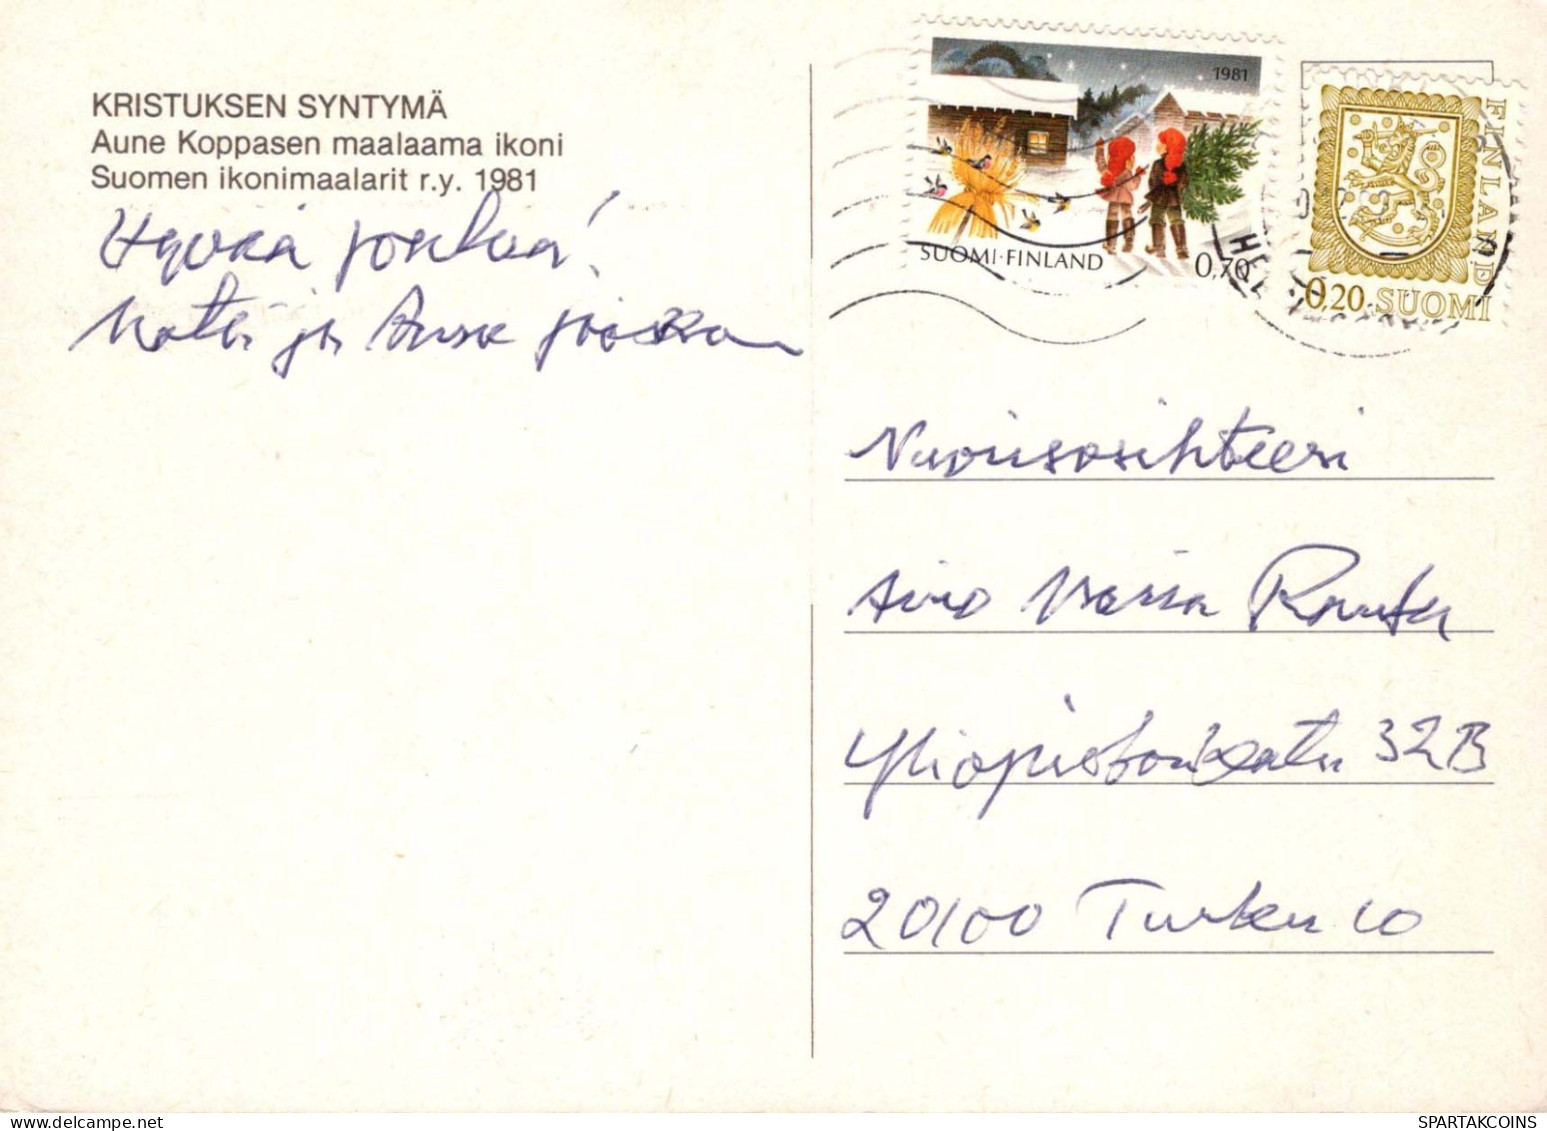 KRISTUKSEN SYNTYMÄ
Aune Koppasen maalaama ikoni
Suomen ikonimaalarit r.y. 1981
Hyvää joulua!
ja
1981
SUOMI·FINLAND
0,70
FINLAND
0,20 SUOMI
Nuorisosihteeri
Rauta
Yliopistonkatu 32B
20100 Turku 10
SPARTAKCOINS